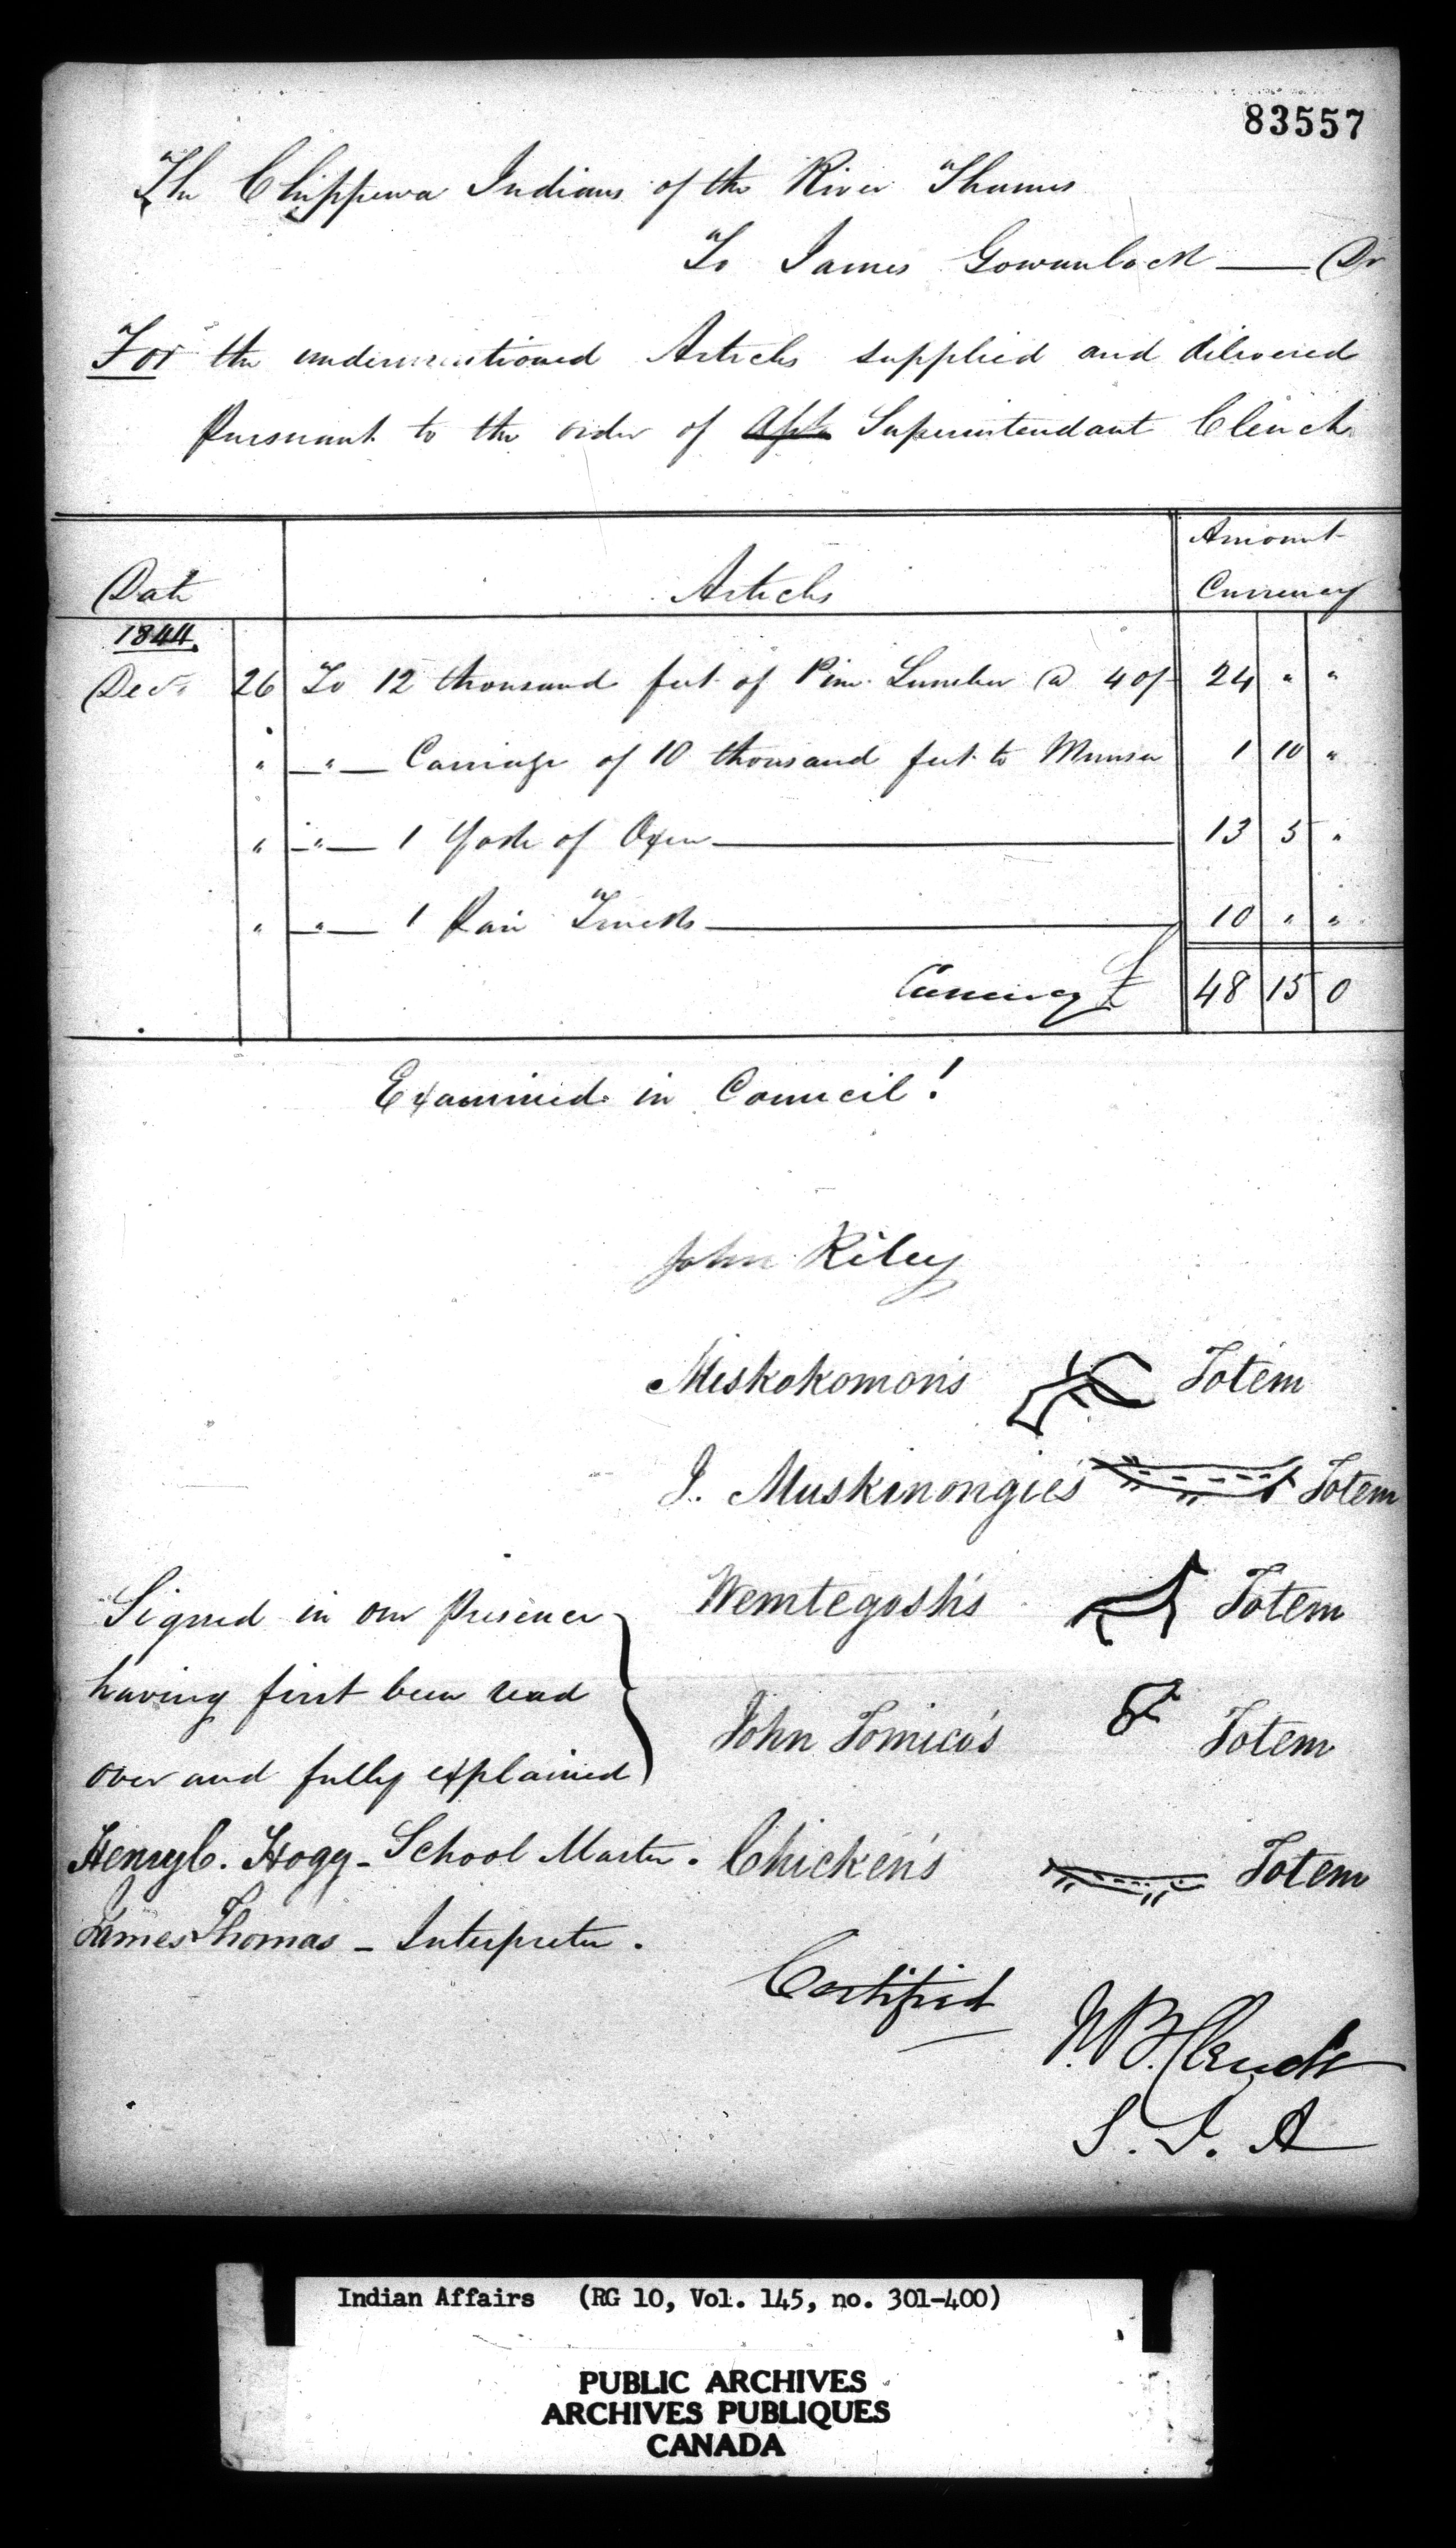 83557
The Chippewa Indians of the River Thames
To James Gowanlock — Dr
For the undermentioned Articles supplied and delivered
Pursuant to the order of Superintendant Clench
Date Articles Amount Currency
1844
Decr 26 To 12 thousand feet of Pine Lumber @ 40/- 24 " "
" — " — Carriage of 10 thousand feet to Munsee 1 10 "
" — " — 1 Yoke of Oxen — 13 5 "
" — " — 1 Pair Trucks — 10 " "
Currency £ 48 15 0
Examined in Council!
John Riley
Miskokomon's Totem
J. Muskinongie's Totem
Wemtegosh's Totem
John Tomico's Totem
Chicken's Totem
Signed in our Presence
having first been read
over and fully explained
Henry C. Hogg - School Master.
James Thomas - Interpreter.
Certified
J. B. Clench
S. I. A
Indian Affairs (RG 10, Vol. 145, no. 301-400)
PUBLIC ARCHIVES
ARCHIVES PUBLIQUES
CANADA